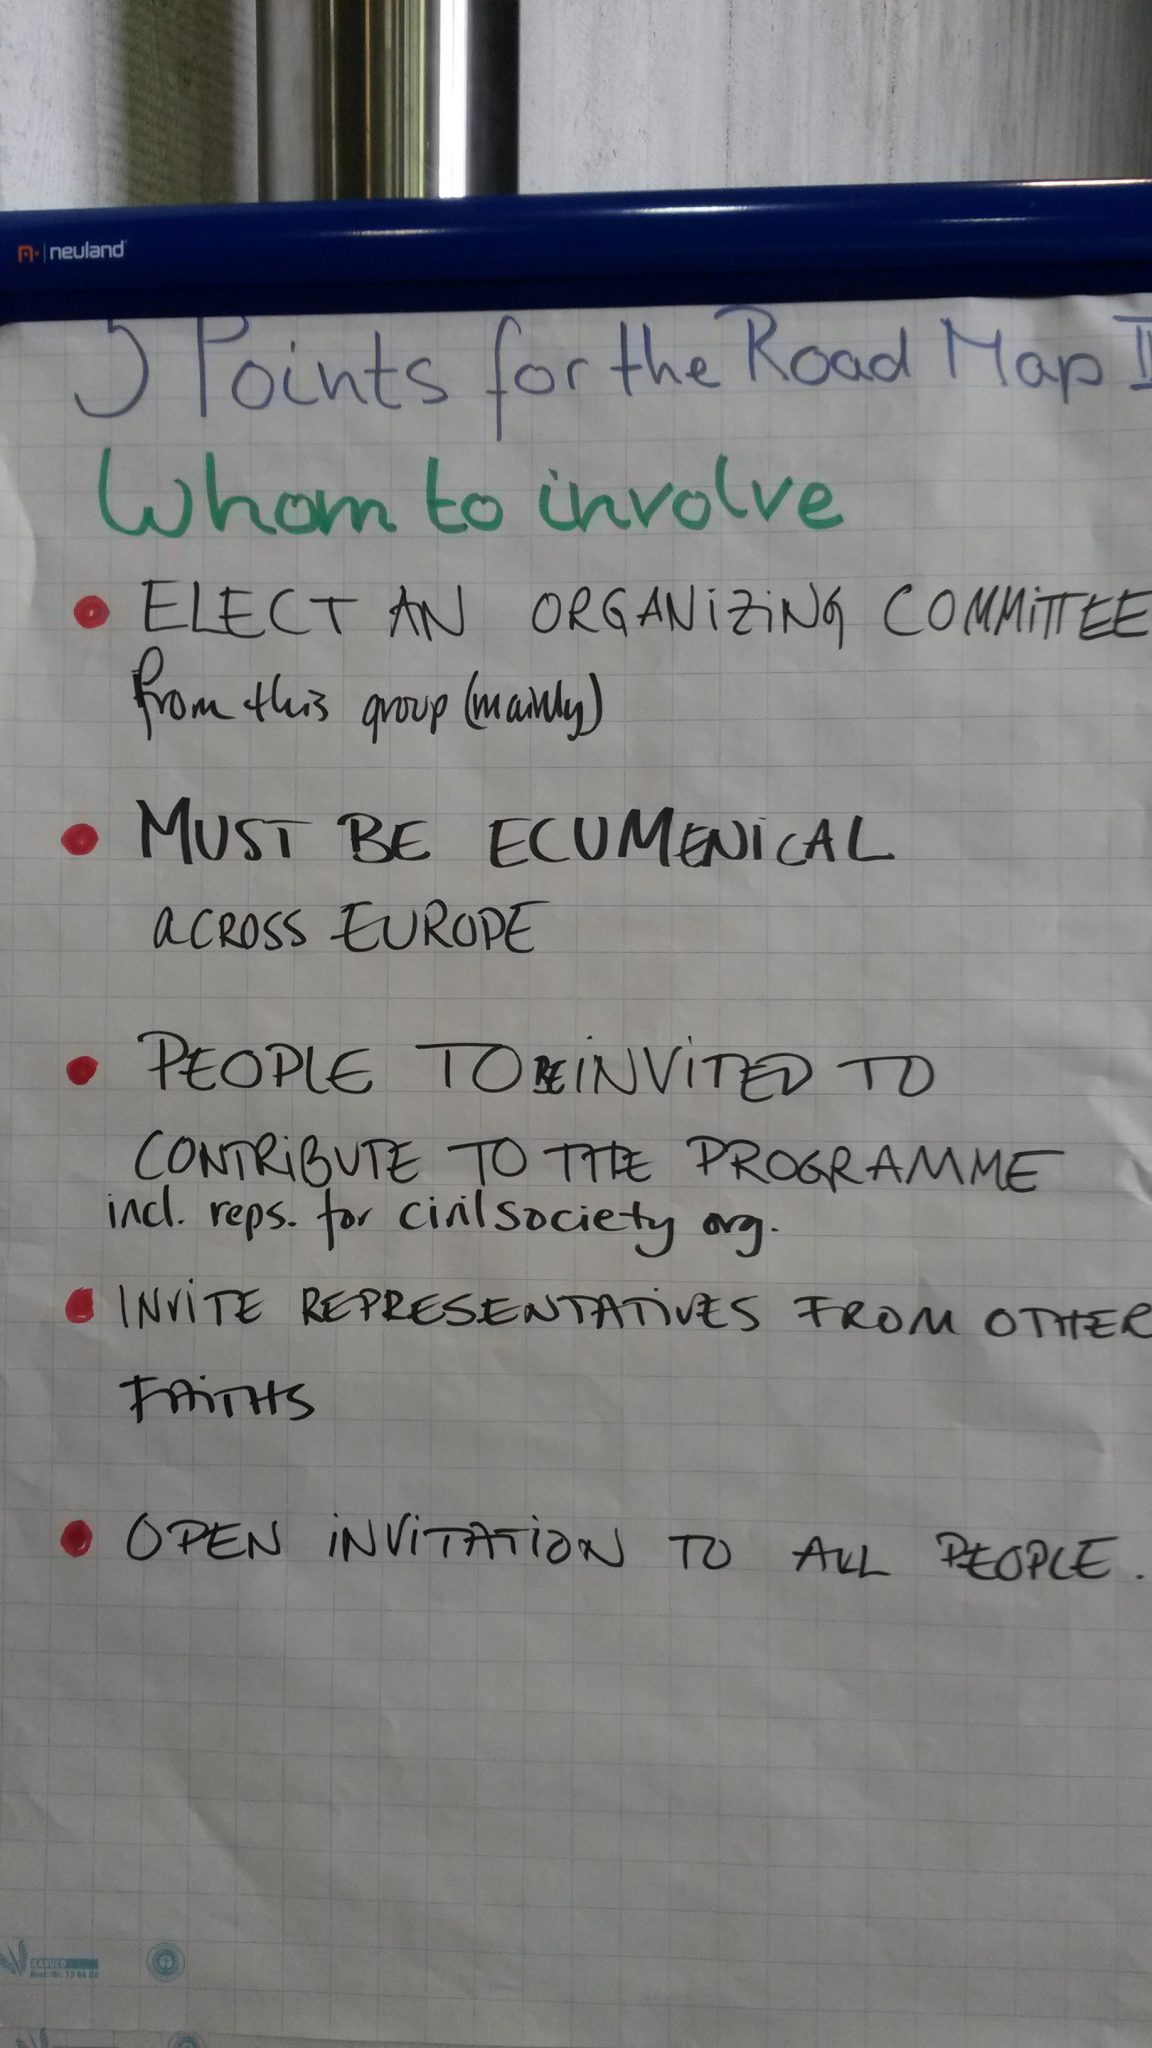 neuland
5 Points for the Road Map II
Whom to involve
• ELECT AN ORGANIZING COMMITTEE
from this group (mainly)
• MUST BE ECUMENICAL
ACROSS EUROPE
• PEOPLE TO BE INVITED TO
CONTRIBUTE TO THE PROGRAMME
incl. reps. for civil society org.
• INVITE REPRESENTATIVES FROM OTHER
FAITHS
• OPEN INVITATION TO ALL PEOPLE.